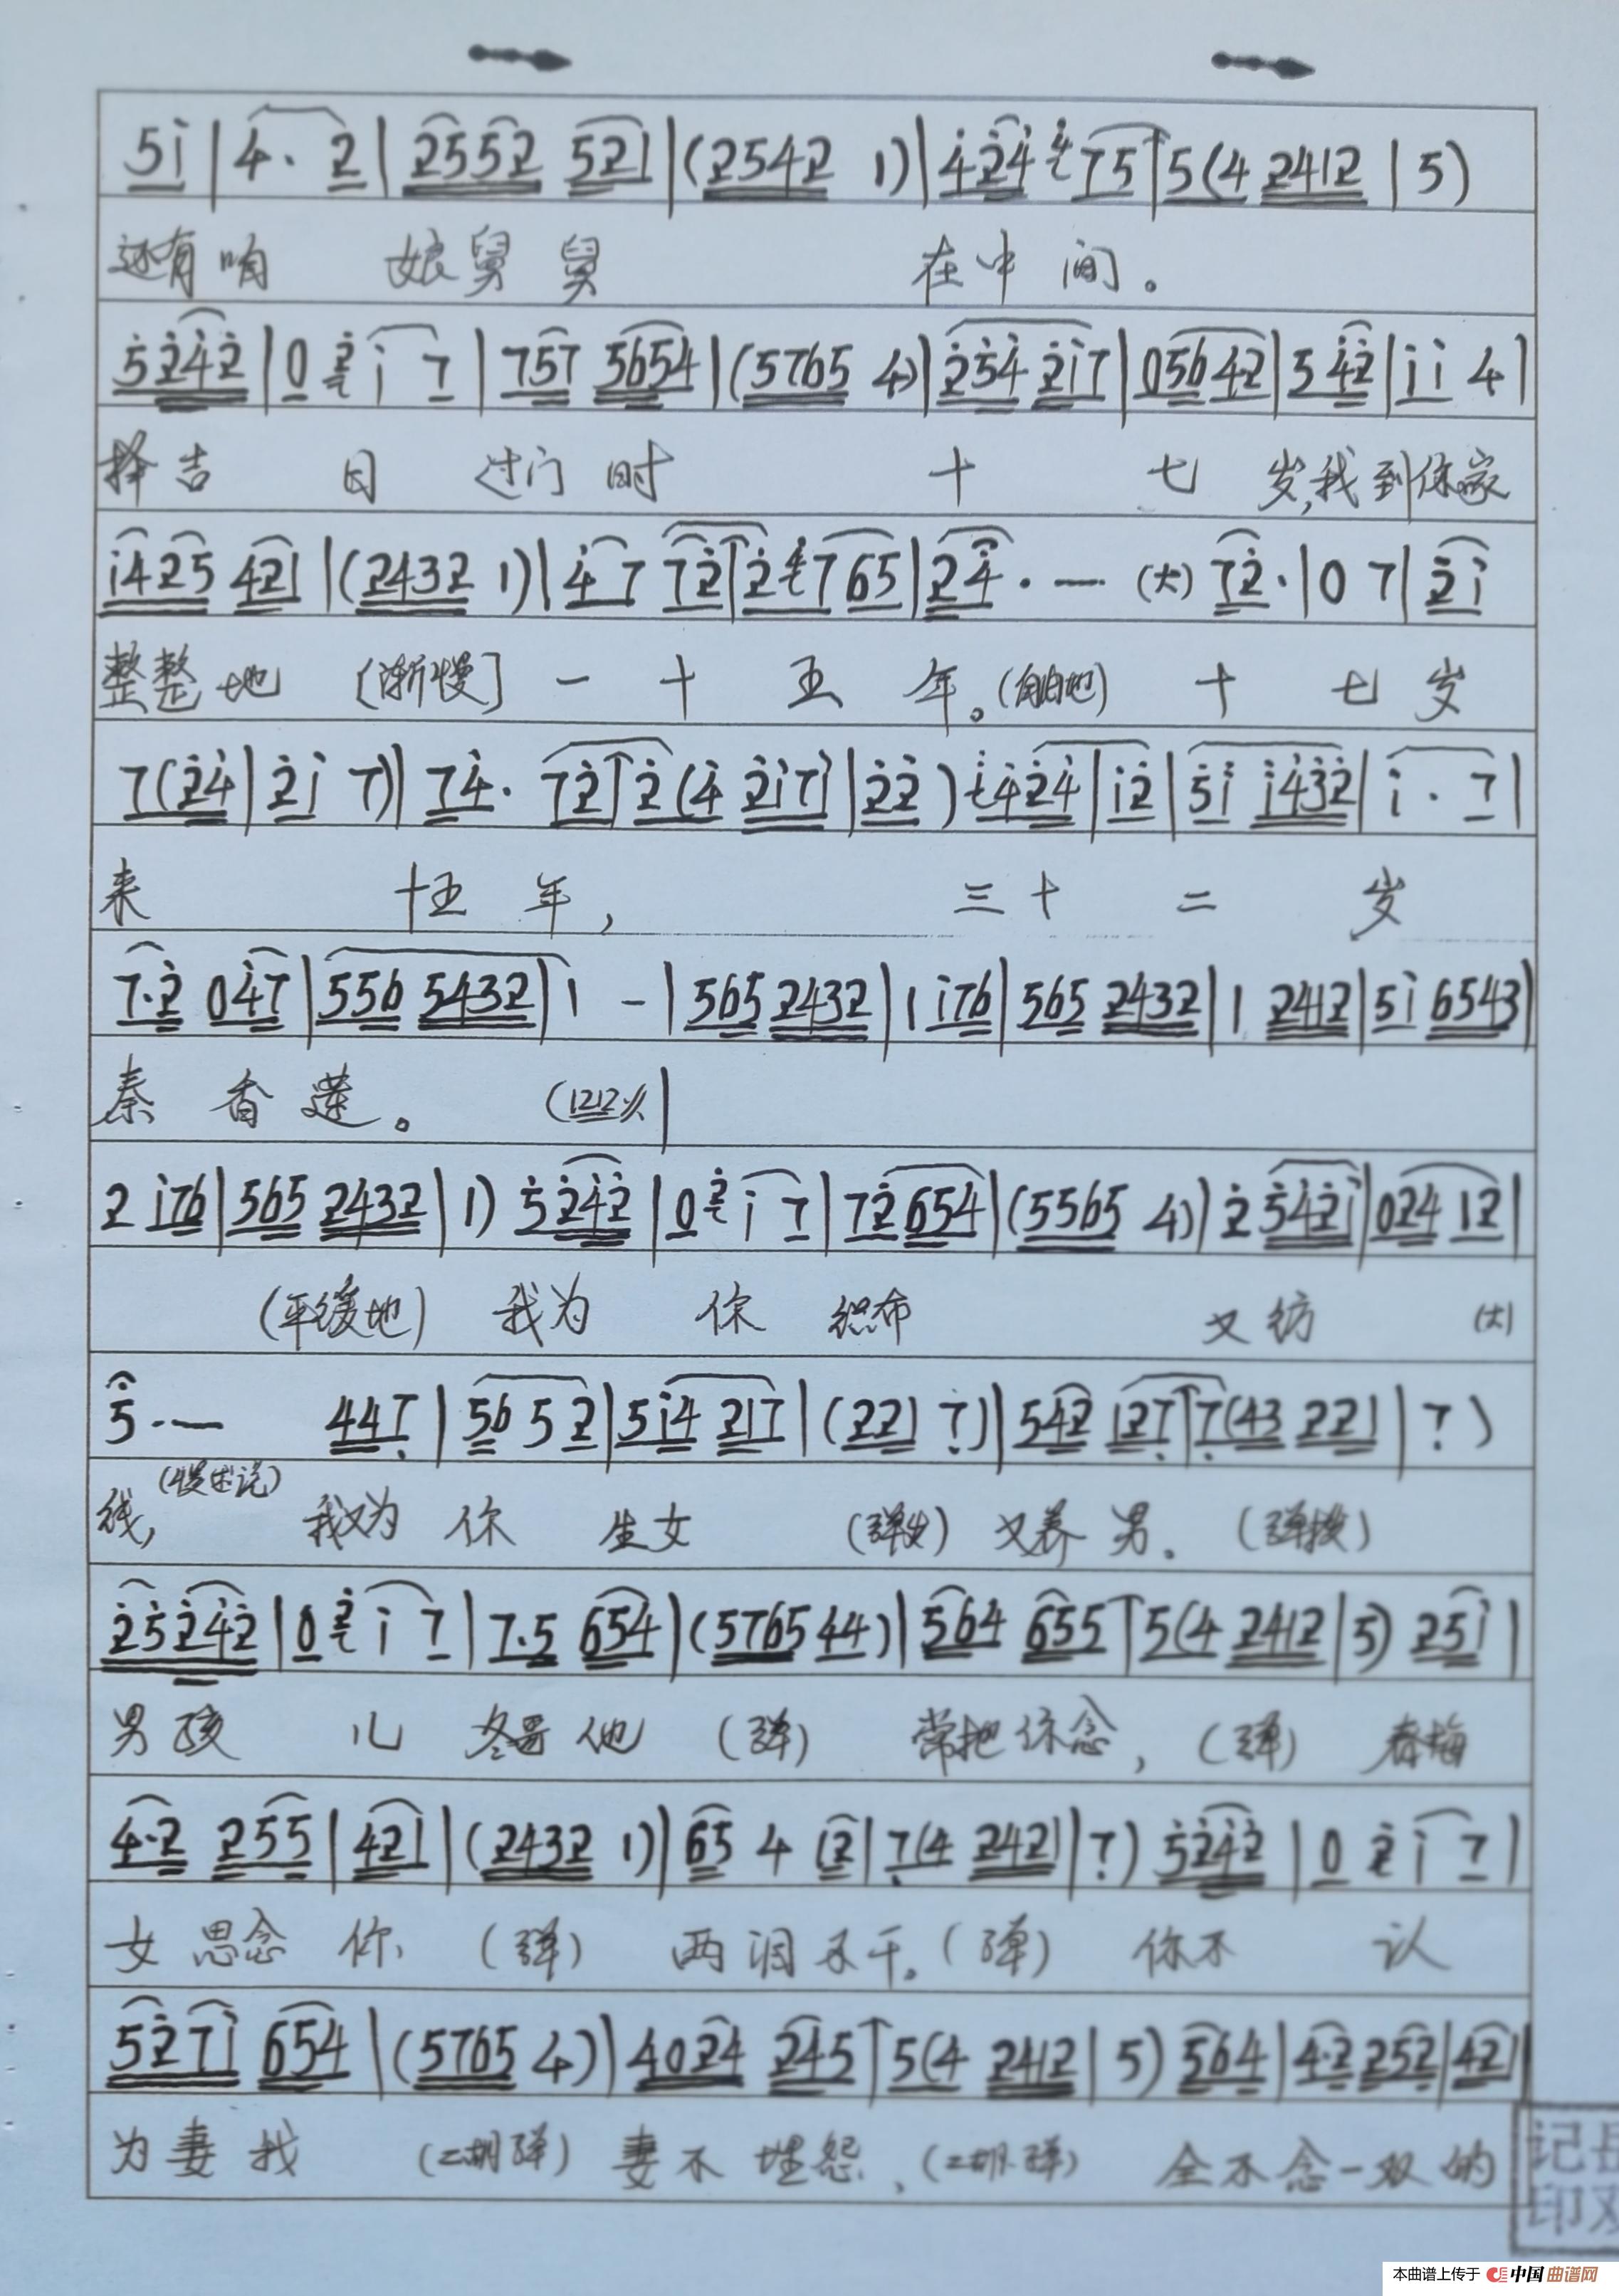 5i | 4. 2 | 2552 521 | (2542 1) | 424 75 | 5(4 2412 | 5)
还有咱 娘舅舅 在中间。
5242 | 0 2 i 7 | 757 5654 | (5765 4) | 254 2i7 | 056 42 | 5 42 | i i 4 |
择吉 日 过门时 十 七 岁,我到你家
i425 421 | (2432 1) | 4 7 72 | 2 7 65 | 24. — (大) 72. | 0 7 | 2i
整整地 [渐慢] 一十五年。(自由地) 十七岁
7(24 | 2i 7) | 74. 72 | 2(4 2i7i | 22) 424 | i2 | 5i i432 | i. 7 |
来 十五年, 三十二 岁
7.2 047 | 556 5432 | 1 - | 565 2432 | 1 i76 | 565 2432 | 1 2412 | 5i 6543
秦香莲。 (1212
2 i76 | 565 2432 | 1) 5242 | 0 2 i 7 | 72 654 | (5565 4) | 2 542i | 024 12 |
(平缓地) 我为 你 织布 又纺 (大)
5.— 447 | 56 5 2 | 5i4 217 | (221 7) | 542 127 | 7(43 221 | 7)
线, 我又为 你 生女 又养男。
25242 | 0 2 i 7 | 7.5 654 | (5765 44) | 564 655 | 5(4 2412 | 5) 25i |
男孩 儿冬哥他 (弹) 常把你念, (弹) 春梅
4.2 255 | 421 | (2432 1) | 65 4 12 | 7(4 2421 | 7) 5242 | 0 2 i 7 |
女思念你, (弹) 两泪不干。(弹) 你不 认
527i 654 | (5765 4) | 4024 245 | 5(4 2412 | 5) 564 | 4.2 252 | 421
为妻我 (二胡弹) 妻不埋怨, (二胡弹) 全不念一双的
记
印
本曲谱上传于 中国曲谱网